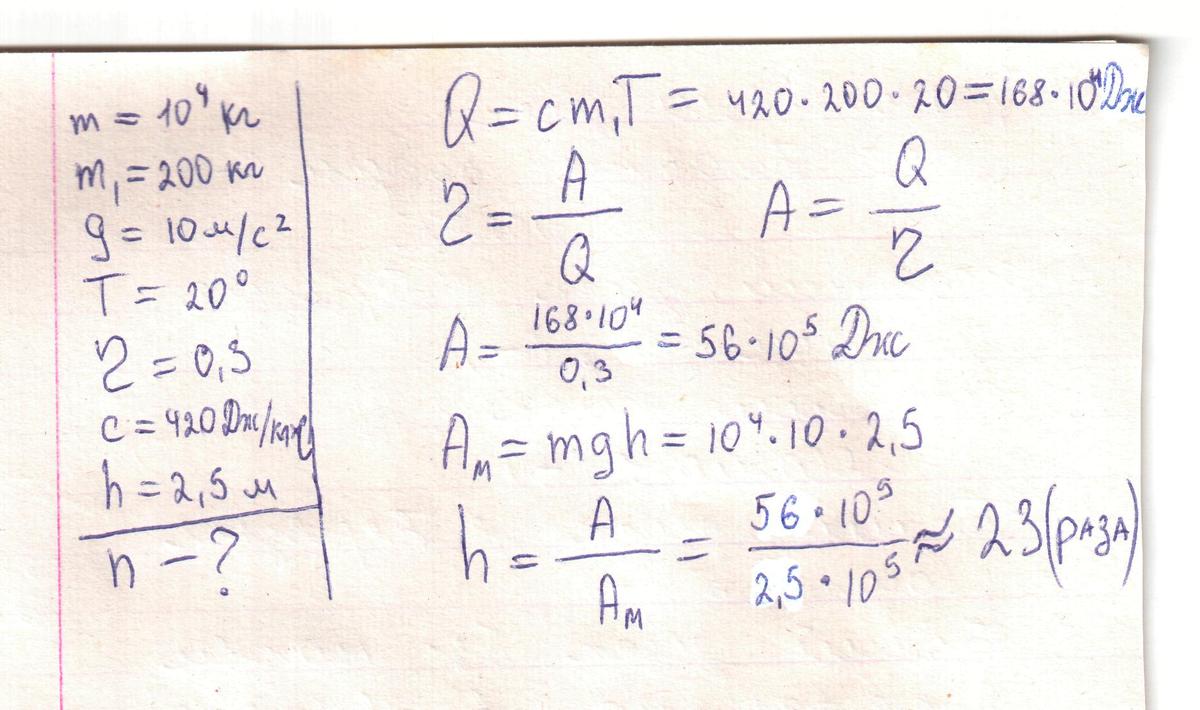 m = 10⁴ кг
m₁ = 200 кг
g = 10 м/с²
T = 20°
η = 0,3
c = 420 Дж/кг°C
h = 2,5 м
n - ?
Q = cm₁T = 420·200·20 = 168·10⁴ Дж
η = A/Q A = Q/η
A = 168·10⁴/0,3 = 56·10⁵ Дж
Aм = mgh = 10⁴·10·2,5
h = A/Aм = 56·10⁵/2,5·10⁵ ≈ 23 (раза)